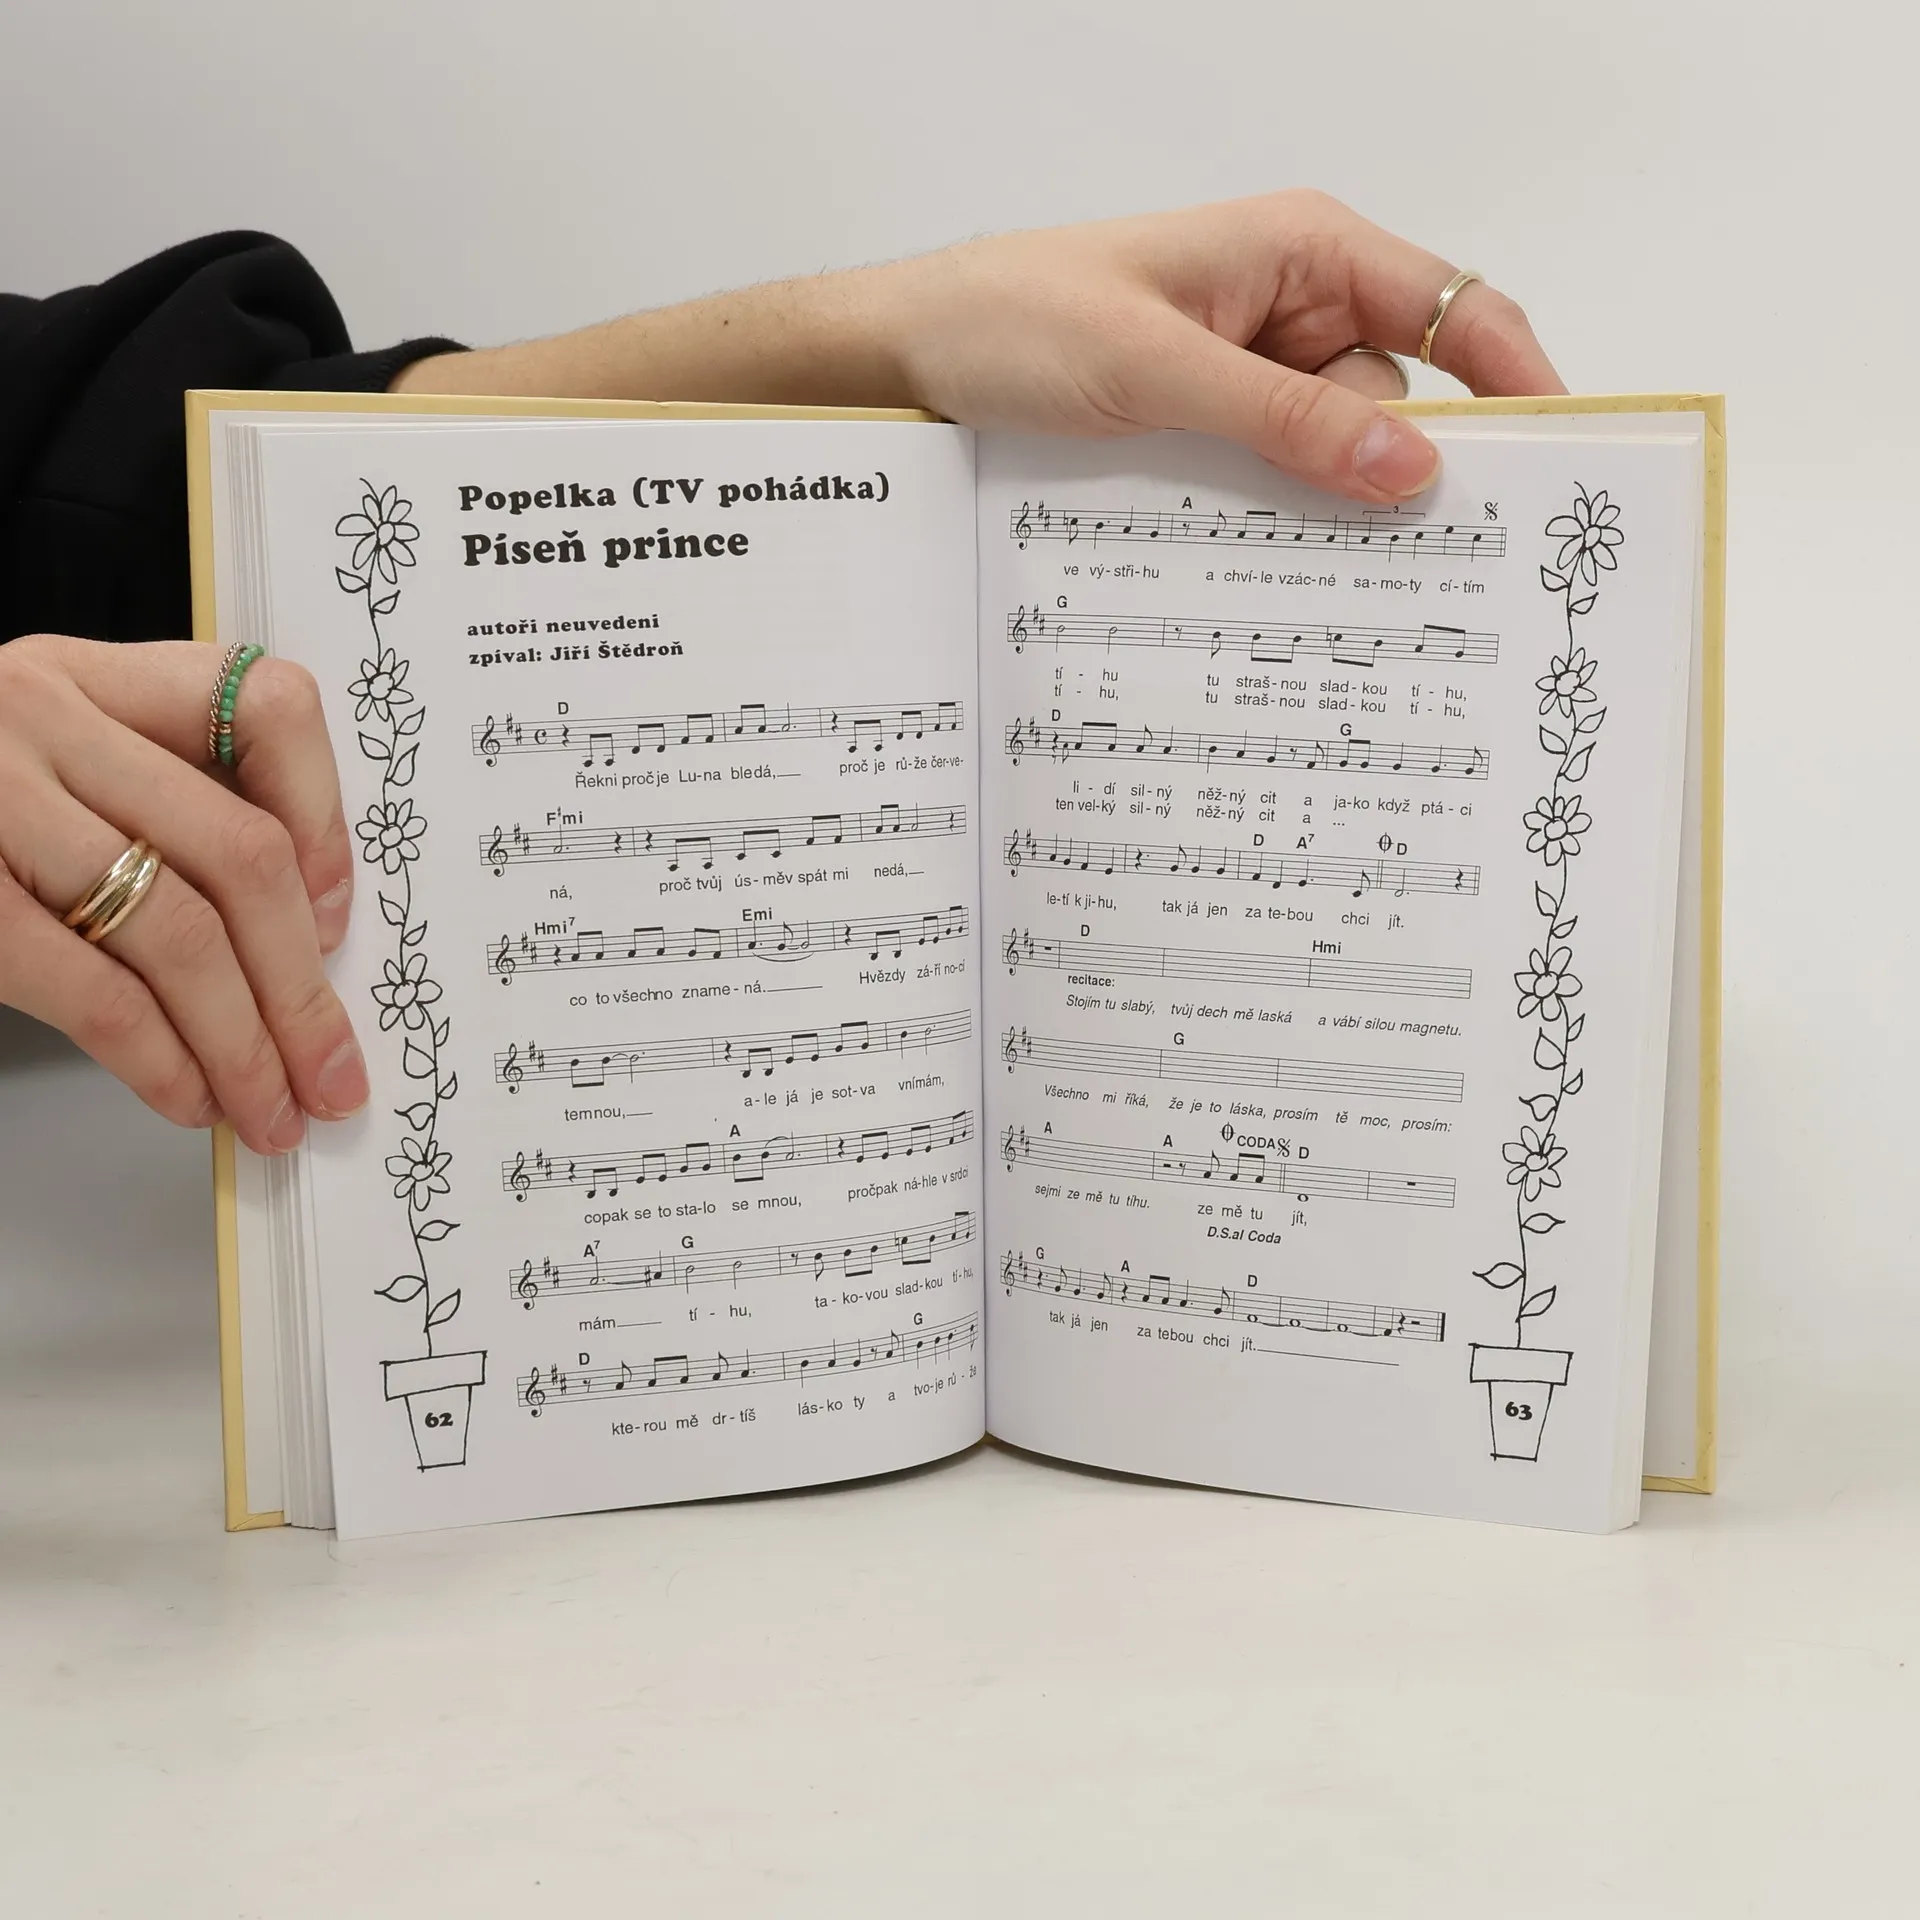 Popelka (TV pohádka)
Píseň prince
autoři neuvedeni
zpíval: Jiří Štědroň
D
Řekni proč je Lu-na bledá, proč je rů-že čer-ve-
F♯mi
ná, proč tvůj ús-měv spát mi nedá,
Hmi7 Emi
co to všechno zname-ná. Hvězdy zá-ří no-cí
temnou, a-le já je sot-va vnímám,
A
copak se to sta-lo se mnou, pročpak ná-hle v srdci
A7 G
mám tí - hu, ta-ko-vou slad-kou tí-hu,
D G
kte-rou mě dr-tíš lás-ko ty a tvo-je rů - že
62
A 3
ve vý-stři-hu a chví-le vzác-né sa-mo-ty cí-tím
G
tí - hu tu straš-nou slad-kou tí - hu,
tí - hu, tu straš-nou slad-kou tí - hu,
D G
li - dí sil-ný něž-ný cit a ja-ko když ptá - ci
ten vel-ký sil-ný něž-ný cit a ...
D A7 D
le-tí k ji-hu, tak já jen za te-bou chci jít.
D Hmi
recitace:
Stojím tu slabý, tvůj dech mě laská a vábí silou magnetu.
G
Všechno mi říká, že je to láska, prosím tě moc, prosím:
A A CODA D
sejmi ze mě tu tíhu. ze mě tu jít,
D.S.al Coda
G A D
tak já jen za tebou chci jít.
63